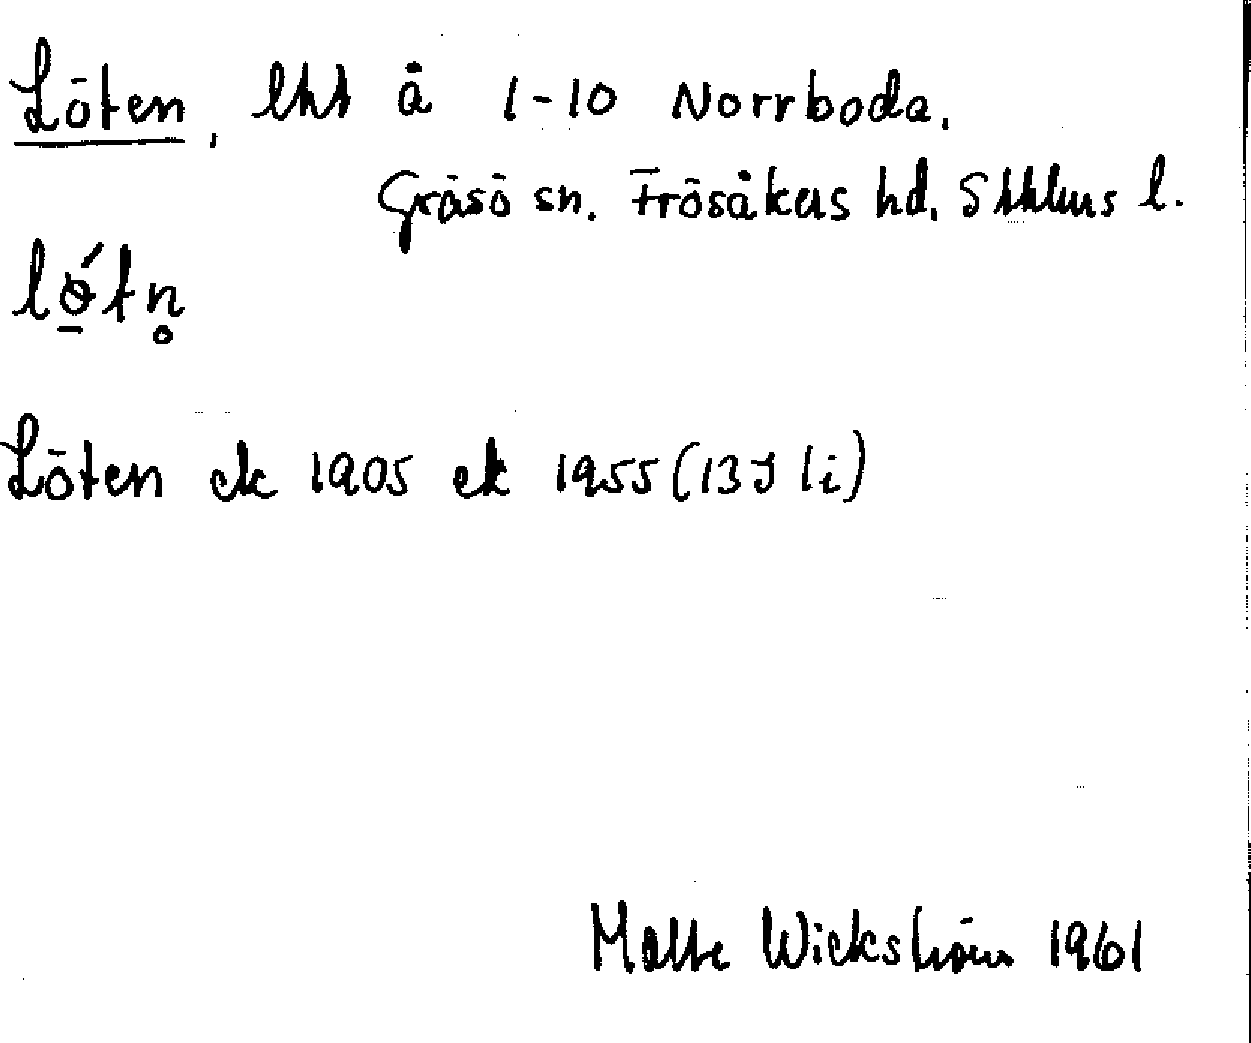 Löten, lht å 1-10 Norrboda.
Gräsö sn. Frösåkers hd. Sthlms l.
lǿ̱tn̥
Löten ek 1905 ek 1955 (13J li)
Malte Wickström 1961